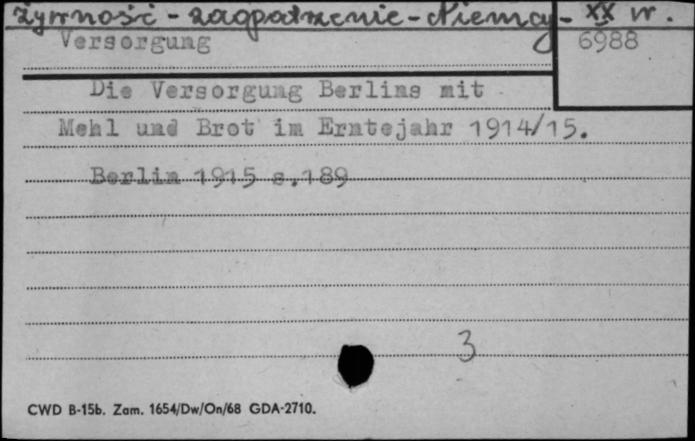 żywność - zaopatrzenie - Niemcy - XX w.
Versorgung 6988
Die Versorgung Berlins mit
Mehl und Brot im Erntejahr 1914/15.
Berlin 1915 s.189
3
CWD B-15b. Zam. 1654/Dw/On/68 GDA-2710.